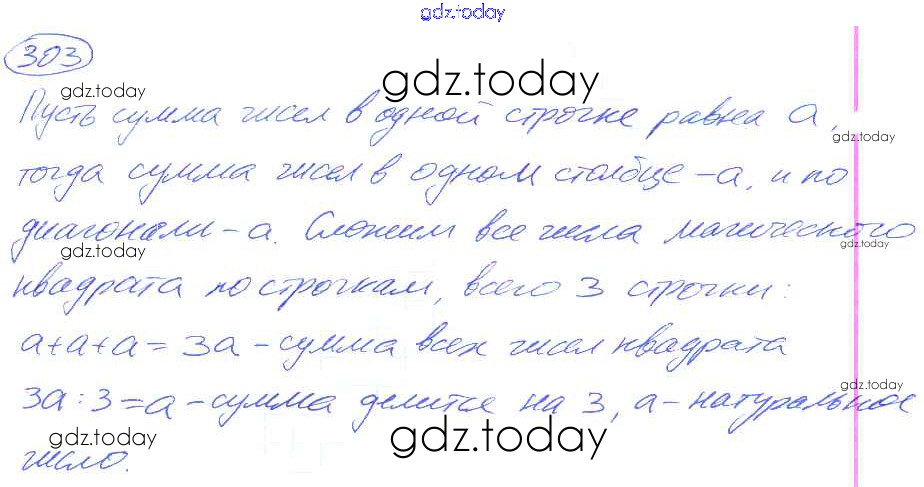 gdz.today
303
gdz.today
gdz.today
Пусть сумма чисел в одной строчке равна a,
gdz.today
тогда сумма чисел в одном столбце - a, и по
диагонали - a. Сложим все числа магического
gdz.today
gdz.today
квадрата по строчкам, всего 3 строчки:
a+a+a = 3a - сумма всех чисел квадрата
gdz.today
3a : 3 = a - сумма делится на 3, a - натуральное
gdz.today
gdz.today
число.